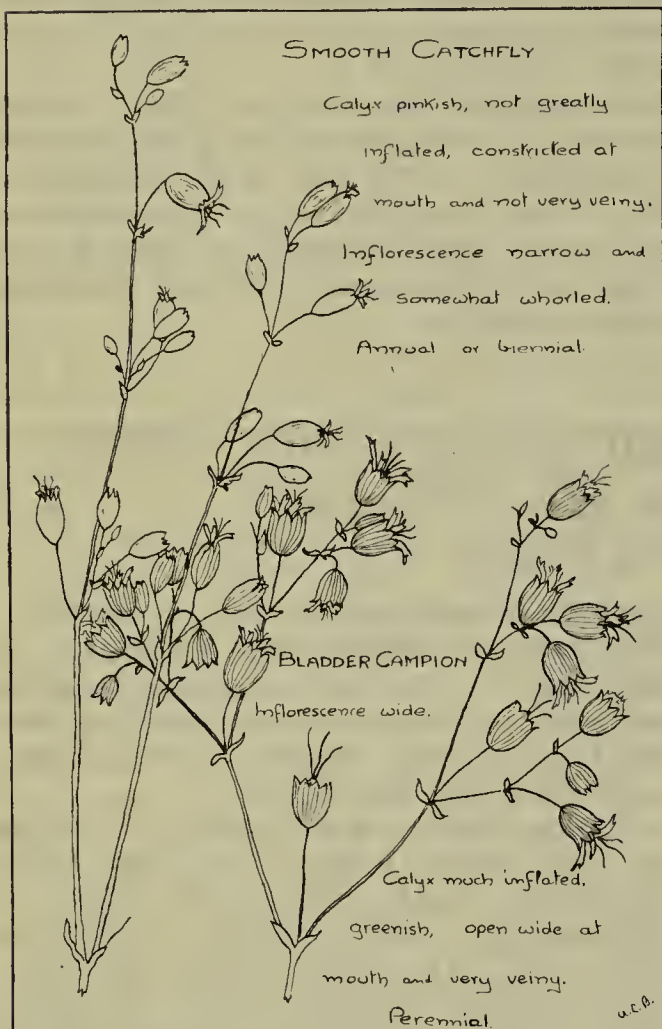 SMOOTH CATCHFLY
Calyx pinkish, not greatly
inflated, constricted at
mouth and not very veiny.
Inflorescence narrow and
somewhat whorled.
Annual or biennial.
BLADDER CAMPION
Inflorescence wide.
Calyx much inflated,
greenish, open wide at
mouth and very veiny.
Perennial.
U.C.B.